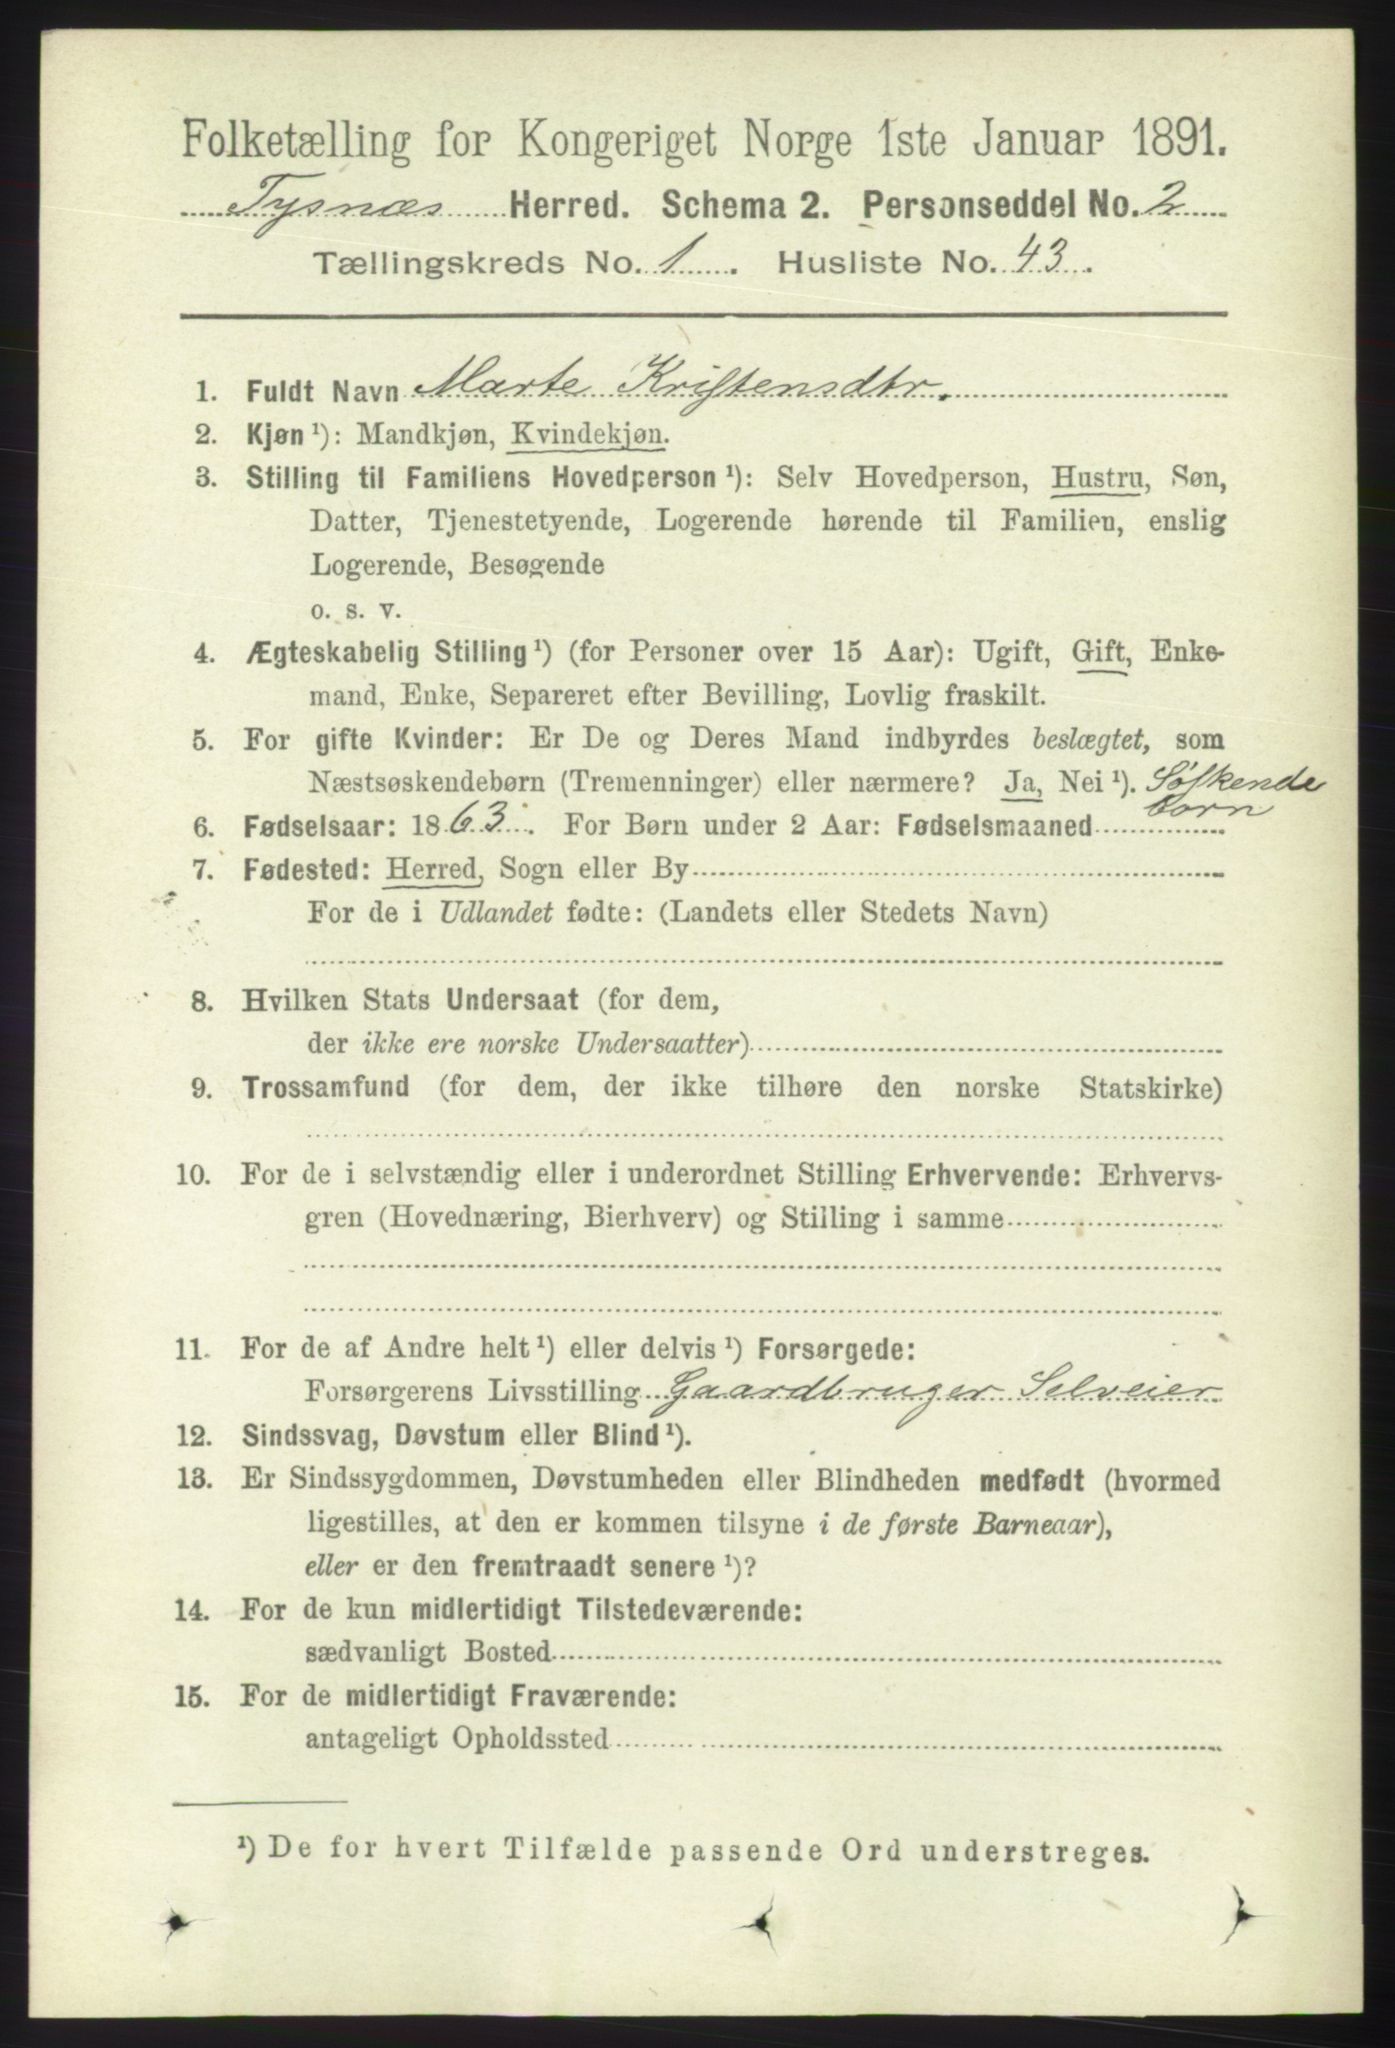 Folketælling for Kongeriget Norge 1ste Januar 1891.
Tysnæs Herred. Schema 2. Personseddel No. 2
Tællingskreds No. 1. Husliste No. 43.
1. Fuldt Navn Marte Kristensdtr.
2. Kjøn ¹): Mandkjøn, Kvindekjøn.
3. Stilling til Familiens Hovedperson ¹): Selv Hovedperson, Hustru, Søn,
Datter, Tjenestetyende, Logerende hørende til Familien, enslig
Logerende, Besøgende
o. s. v.
4. Ægteskabelig Stilling ¹) (for Personer over 15 Aar): Ugift, Gift, Enke-
mand, Enke, Separeret efter Bevilling, Lovlig fraskilt.
5. For gifte Kvinder: Er De og Deres Mand indbyrdes beslægtet, som
Næstsøskendebørn (Tremenninger) eller nærmere? Ja, Nei ¹). Søskende
børn
6. Fødselsaar: 1863. For Børn under 2 Aar: Fødselsmaaned
7. Fødested: Herred, Sogn eller By
For de i Udlandet fødte: (Landets eller Stedets Navn)
8. Hvilken Stats Undersaat (for dem,
der ikke ere norske Undersaatter)
9. Trossamfund (for dem, der ikke tilhøre den norske Statskirke)
10. For de i selvstændig eller i underordnet Stilling Erhvervende: Erhvervs-
gren (Hovednæring, Bierhverv) og Stilling i samme
11. For de af Andre helt ¹) eller delvis ¹) Forsørgede:
Forsørgerens Livsstilling Gaardbruger Selveier
12. Sindssvag, Døvstum eller Blind ¹).
13. Er Sindssygdommen, Døvstumheden eller Blindheden medfødt (hvormed
ligestilles, at den er kommen tilsyne i de første Barneaar),
eller er den fremtraadt senere ¹)?
14. For de kun midlertidigt Tilstedeværende:
sædvanligt Bosted
15. For de midlertidigt Fraværende:
antageligt Opholdssted
¹) De for hvert Tilfælde passende Ord understreges.